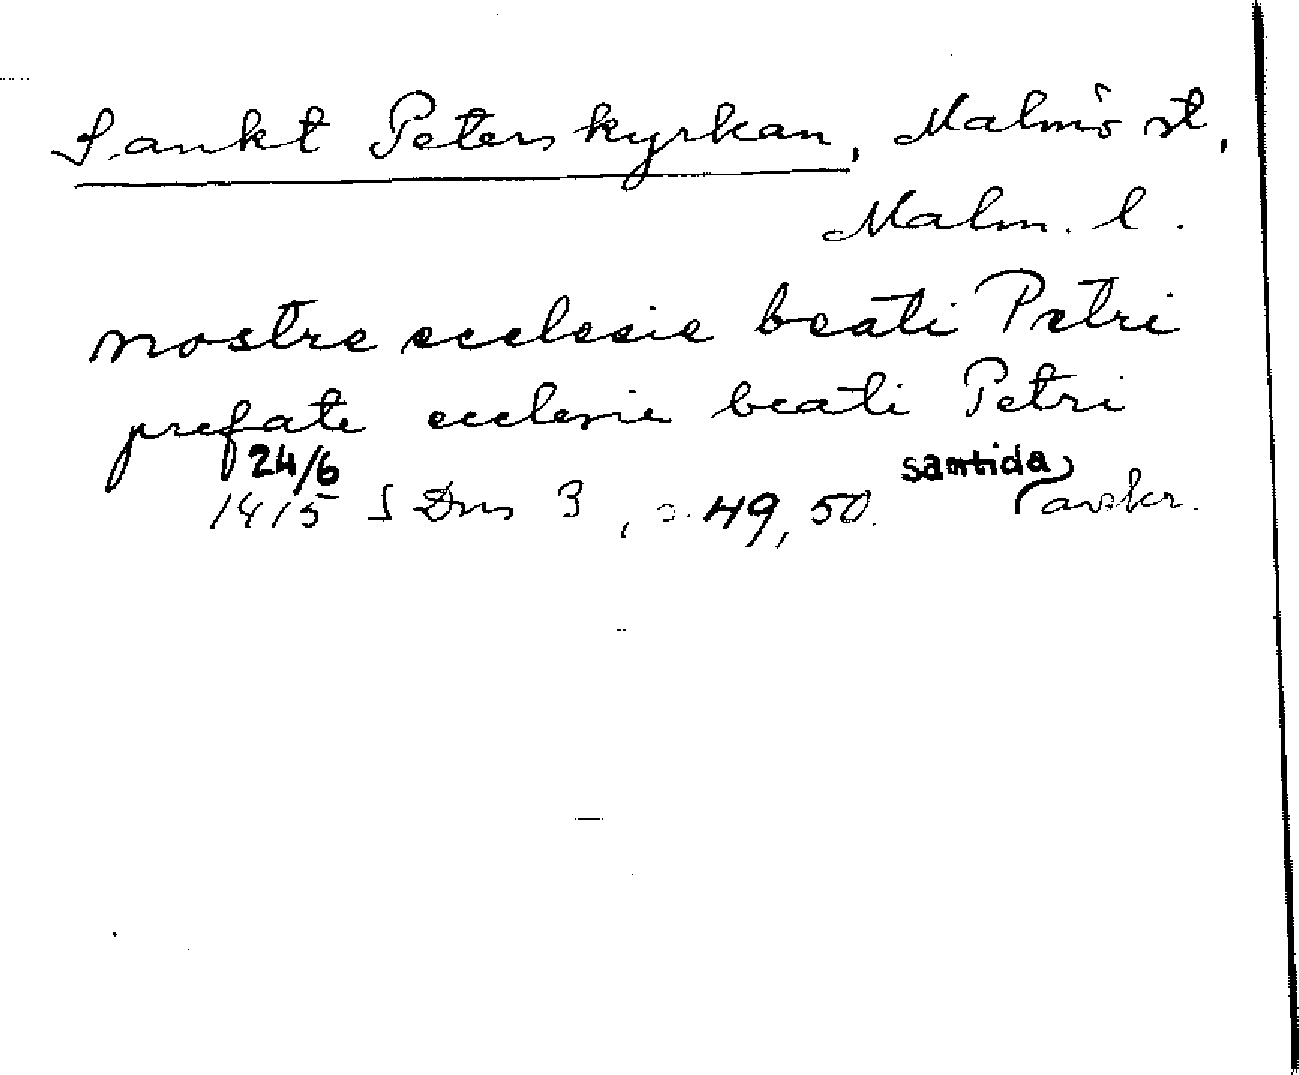 Sankt Peterskyrkan, Malmö st,
Malm. l.
nostre ecclesie beati Petri
prefate ecclesie beati Petri
24/6 samtida
1415 SDns 3, s. 49, 50. avskr.